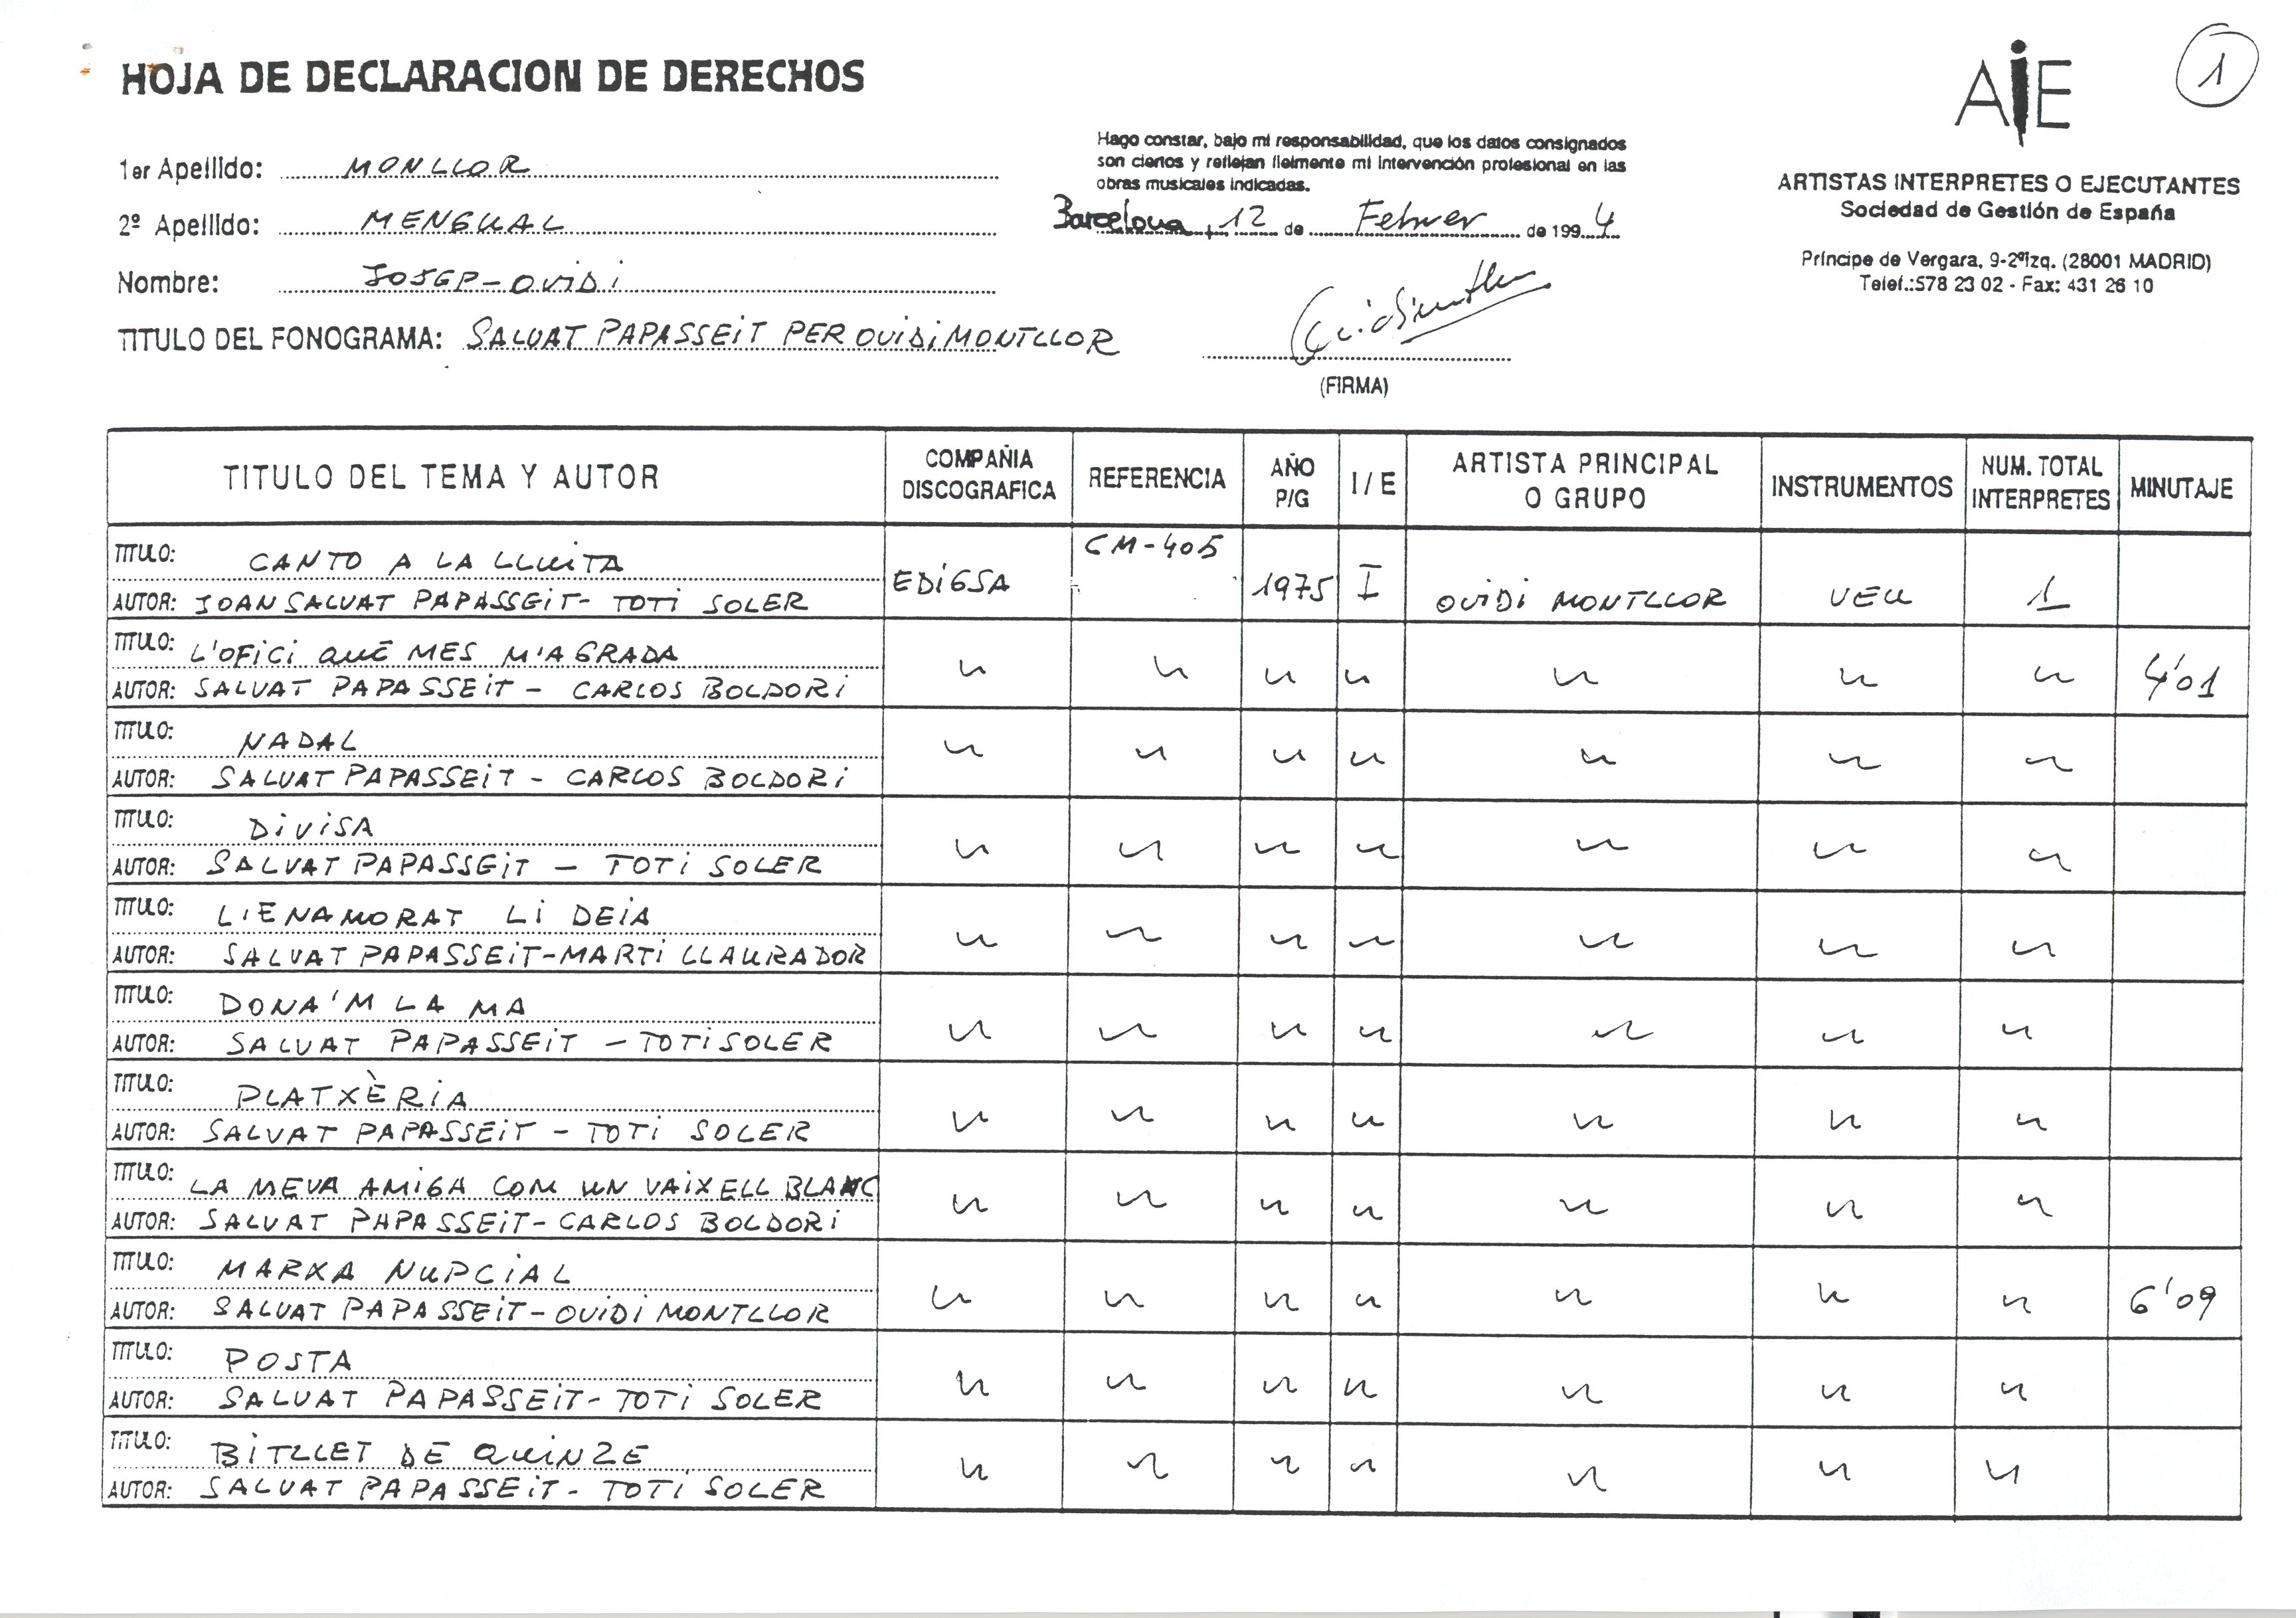 HOJA DE DECLARACION DE DERECHOS
1
AiE
ARTISTAS INTERPRETES O EJECUTANTES
Sociedad de Gestión de España
Príncipe de Vergara, 9-2ºizq. (28001 MADRID)
Telef.:578 23 02 - Fax: 431 26 10
1er Apellido: MONLLOR
2º Apellido: MENGUAL
Nombre: JOSEP-OViDi
TITULO DEL FONOGRAMA: SALVAT PAPASSEiT PER OViDi MONTLLOR
Hago constar, bajo mi responsabilidad, que los datos consignados
son ciertos y reflejan fielmente mi intervención profesional en las
obras musicales indicadas.
Barcelona, 12 de Febrer de 1994
(FIRMA)
TITULO DEL TEMA Y AUTOR COMPAÑIA DISCOGRAFICA REFERENCIA AÑO P/G I / E ARTISTA PRINCIPAL O GRUPO INSTRUMENTOS NUM. TOTAL INTERPRETES MINUTAJE
TITULO: CANTO A LA LLUiTA
AUTOR: JOAN SALVAT PAPASSEiT- TOTi SOLER
EDiGSA CM-405 1975 I OViDi MONTLLOR VEU 1
TITULO: L'OFiCi QUE MES M'AGRADA
AUTOR: SALVAT PAPASSEiT - CARLOS BOLDORi
" " " " " " " 4'01
TITULO: NADAL
AUTOR: SALVAT PAPASSEiT - CARLOS BOLDORi
" " " " " " "
TITULO: DiViSA
AUTOR: SALVAT PAPASSEiT - TOTi SOLER
" " " " " " "
TITULO: L'ENAMORAT Li DEiA
AUTOR: SALVAT PAPASSEiT-MARTi LLAURADOR
" " " " " " "
TITULO: DONA'M LA MA
AUTOR: SALVAT PAPASSEiT - TOTi SOLER
" " " " " " "
TITULO: PLATXÈRiA
AUTOR: SALVAT PAPASSEiT - TOTi SOLER
" " " " " " "
TITULO: LA MEVA AMiGA COM UN VAiXELL BLANC
AUTOR: SALVAT PAPASSEiT-CARLOS BOLDORi
" " " " " " "
TITULO: MARXA NUPCiAL
AUTOR: SALVAT PAPASSEiT-OViDi MONTLLOR
" " " " " " " 6'09
TITULO: POSTA
AUTOR: SALVAT PAPASSEiT- TOTi SOLER
" " " " " " "
TITULO: BiTLLET DE QUiNZE
AUTOR: SALVAT PAPASSEiT - TOTi SOLER
" " " " " " "